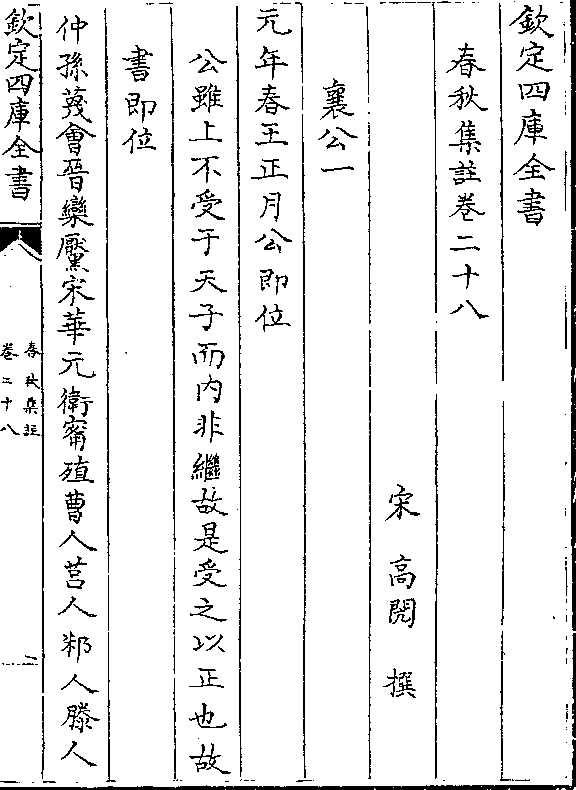 欽定四庫全書
春秋集註卷二十八
宋 高閌 撰
襄公一
元年春王正月公即位
公雖上不受于天子而内非繼故是受之以正也故
書即位
仲孫蔑會晉欒黶宋華元衛甯殖曹人莒人邾人滕人
欽定四庫全書
春秋集註
卷二十八
一